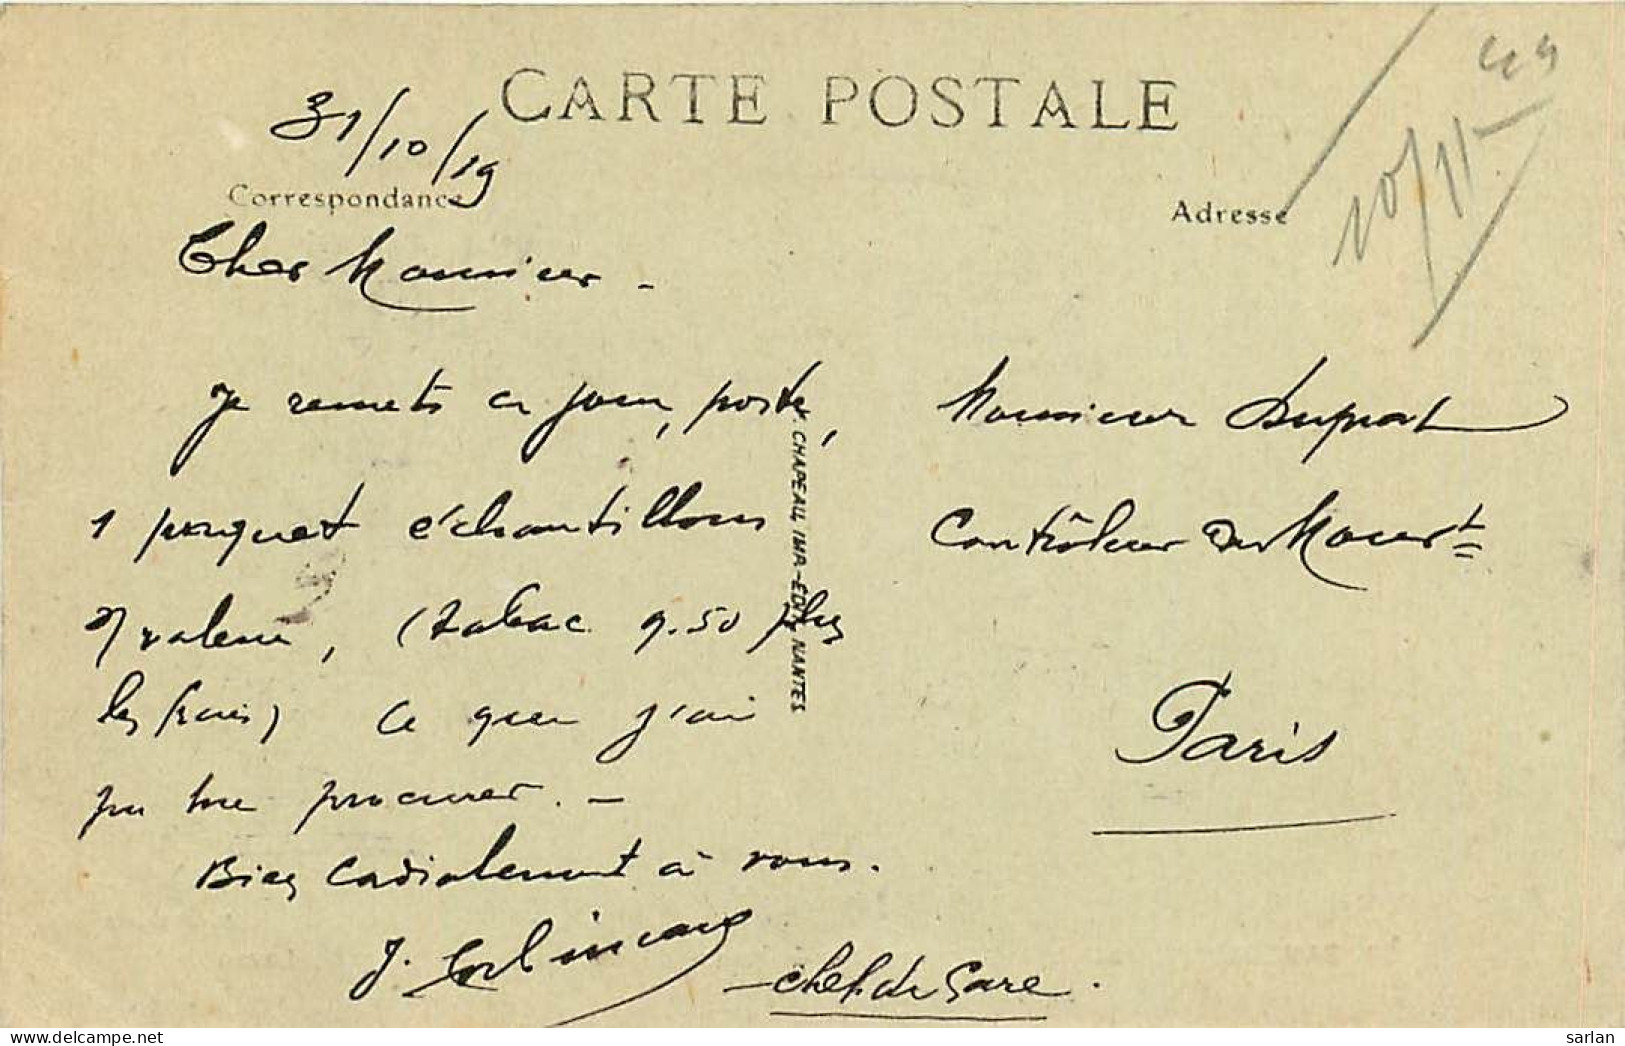 CARTE POSTALE
31/10/19
Correspondance
Cher Monsieur -
Je remets ce jour, poste,
1 paquet échantillons
s/ valeur, (tabac 9.50 plus
les frais) ce que j'ai
pu me procurer. -
Bien Cordialement à vous.
J.
- Chef de Gare.
CHAPEAU IMP-EDIT. NANTES
Adresse
10/11
Monsieur Duprat
Contrôleur du Mouvt
Paris
delcampe.net
sarlan